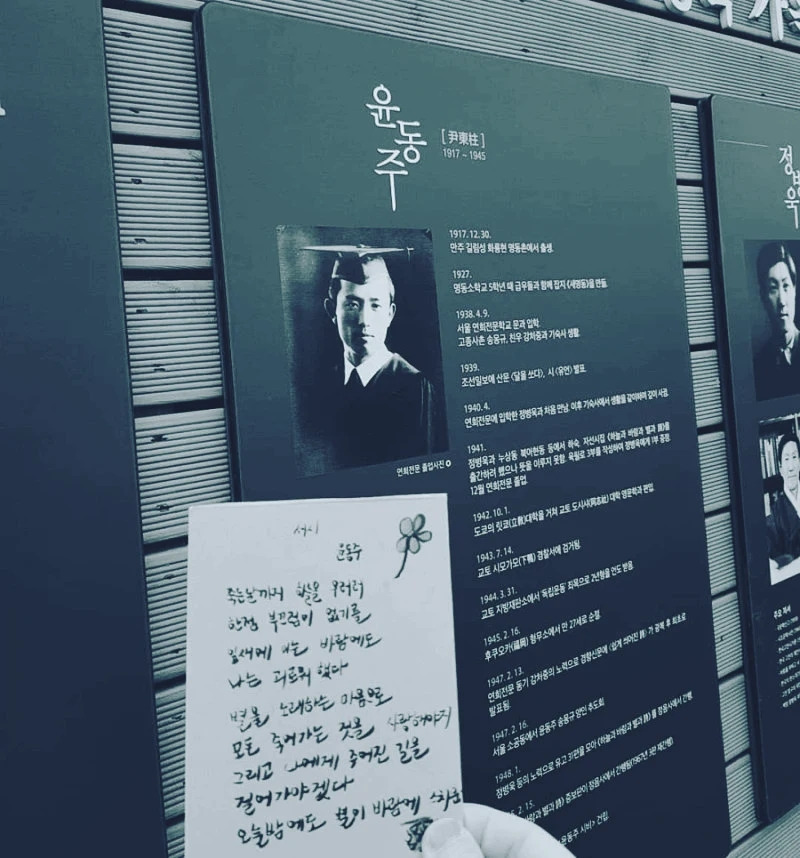 윤동주
[尹東柱]
1917 ~ 1945
연희전문 졸업사진
1917. 12. 30.
만주 길림성 화룡현 명동촌에서 출생.
1927.
명동소학교 5학년 때 급우들과 함께 잡지 《새명동》을 만듦.
1938. 4. 9.
서울 연희전문학교 문과 입학.
고종사촌 송몽규, 친우 강처중과 기숙사 생활.
1939.
조선일보에 산문 〈달을 쏘다〉, 시 〈유언〉 발표.
1940. 4.
연희전문에 입학한 정병욱과 처음 만남. 이후 기숙사에서 생활을 같이하며 깊이 사귐.
1941.
정병욱과 누상동 북아현동 등에서 하숙. 자선시집 《하늘과 바람과 별과 詩》를
출간하려 했으나 뜻을 이루지 못함. 육필로 3부를 작성하여 정병욱에게 1부 증정.
12월 연희전문 졸업.
1942. 10. 1.
도쿄의 릿쿄(立敎)대학을 거쳐 교토 도시샤(同志社) 대학 영문학과 편입.
1943. 7. 14.
교토 시모가모(下鴨) 경찰서에 검거됨.
1944. 3. 31.
교토 지방재판소에서 '독립운동' 죄목으로 2년형을 언도 받음.
1945. 2. 16.
후쿠오카(福岡) 형무소에서 만 27세로 순절.
1947. 2. 13.
연희전문 동기 강처중의 노력으로 경향신문에 〈쉽게 씌어진 詩〉가 광복 후 최초로
발표됨.
1947. 2. 16.
서울 소공동에서 윤동주 송몽규 양인 추도회.
1948. 1.
정병욱 등의 노력으로 유고 31편을 모아 《하늘과 바람과 별과 詩》를 정음사에서 간행.
2. 15.
바람과 별과 詩》 증보판이 정음사에서 간행됨(1967년 3판 재간행)
윤동주 시비> 건립.
서시
윤동주
죽는날까지 하늘을 우러러
한점 부끄럼이 없기를
잎새에 이는 바람에도
나는 괴로워했다
별을 노래하는 마음으로
모든 죽어가는 것을 사랑해야지
그리고 나에게 주어진 길을
걸어가야겠다
오늘밤에도 별이 바람에 스치운
정병욱
주요 저서